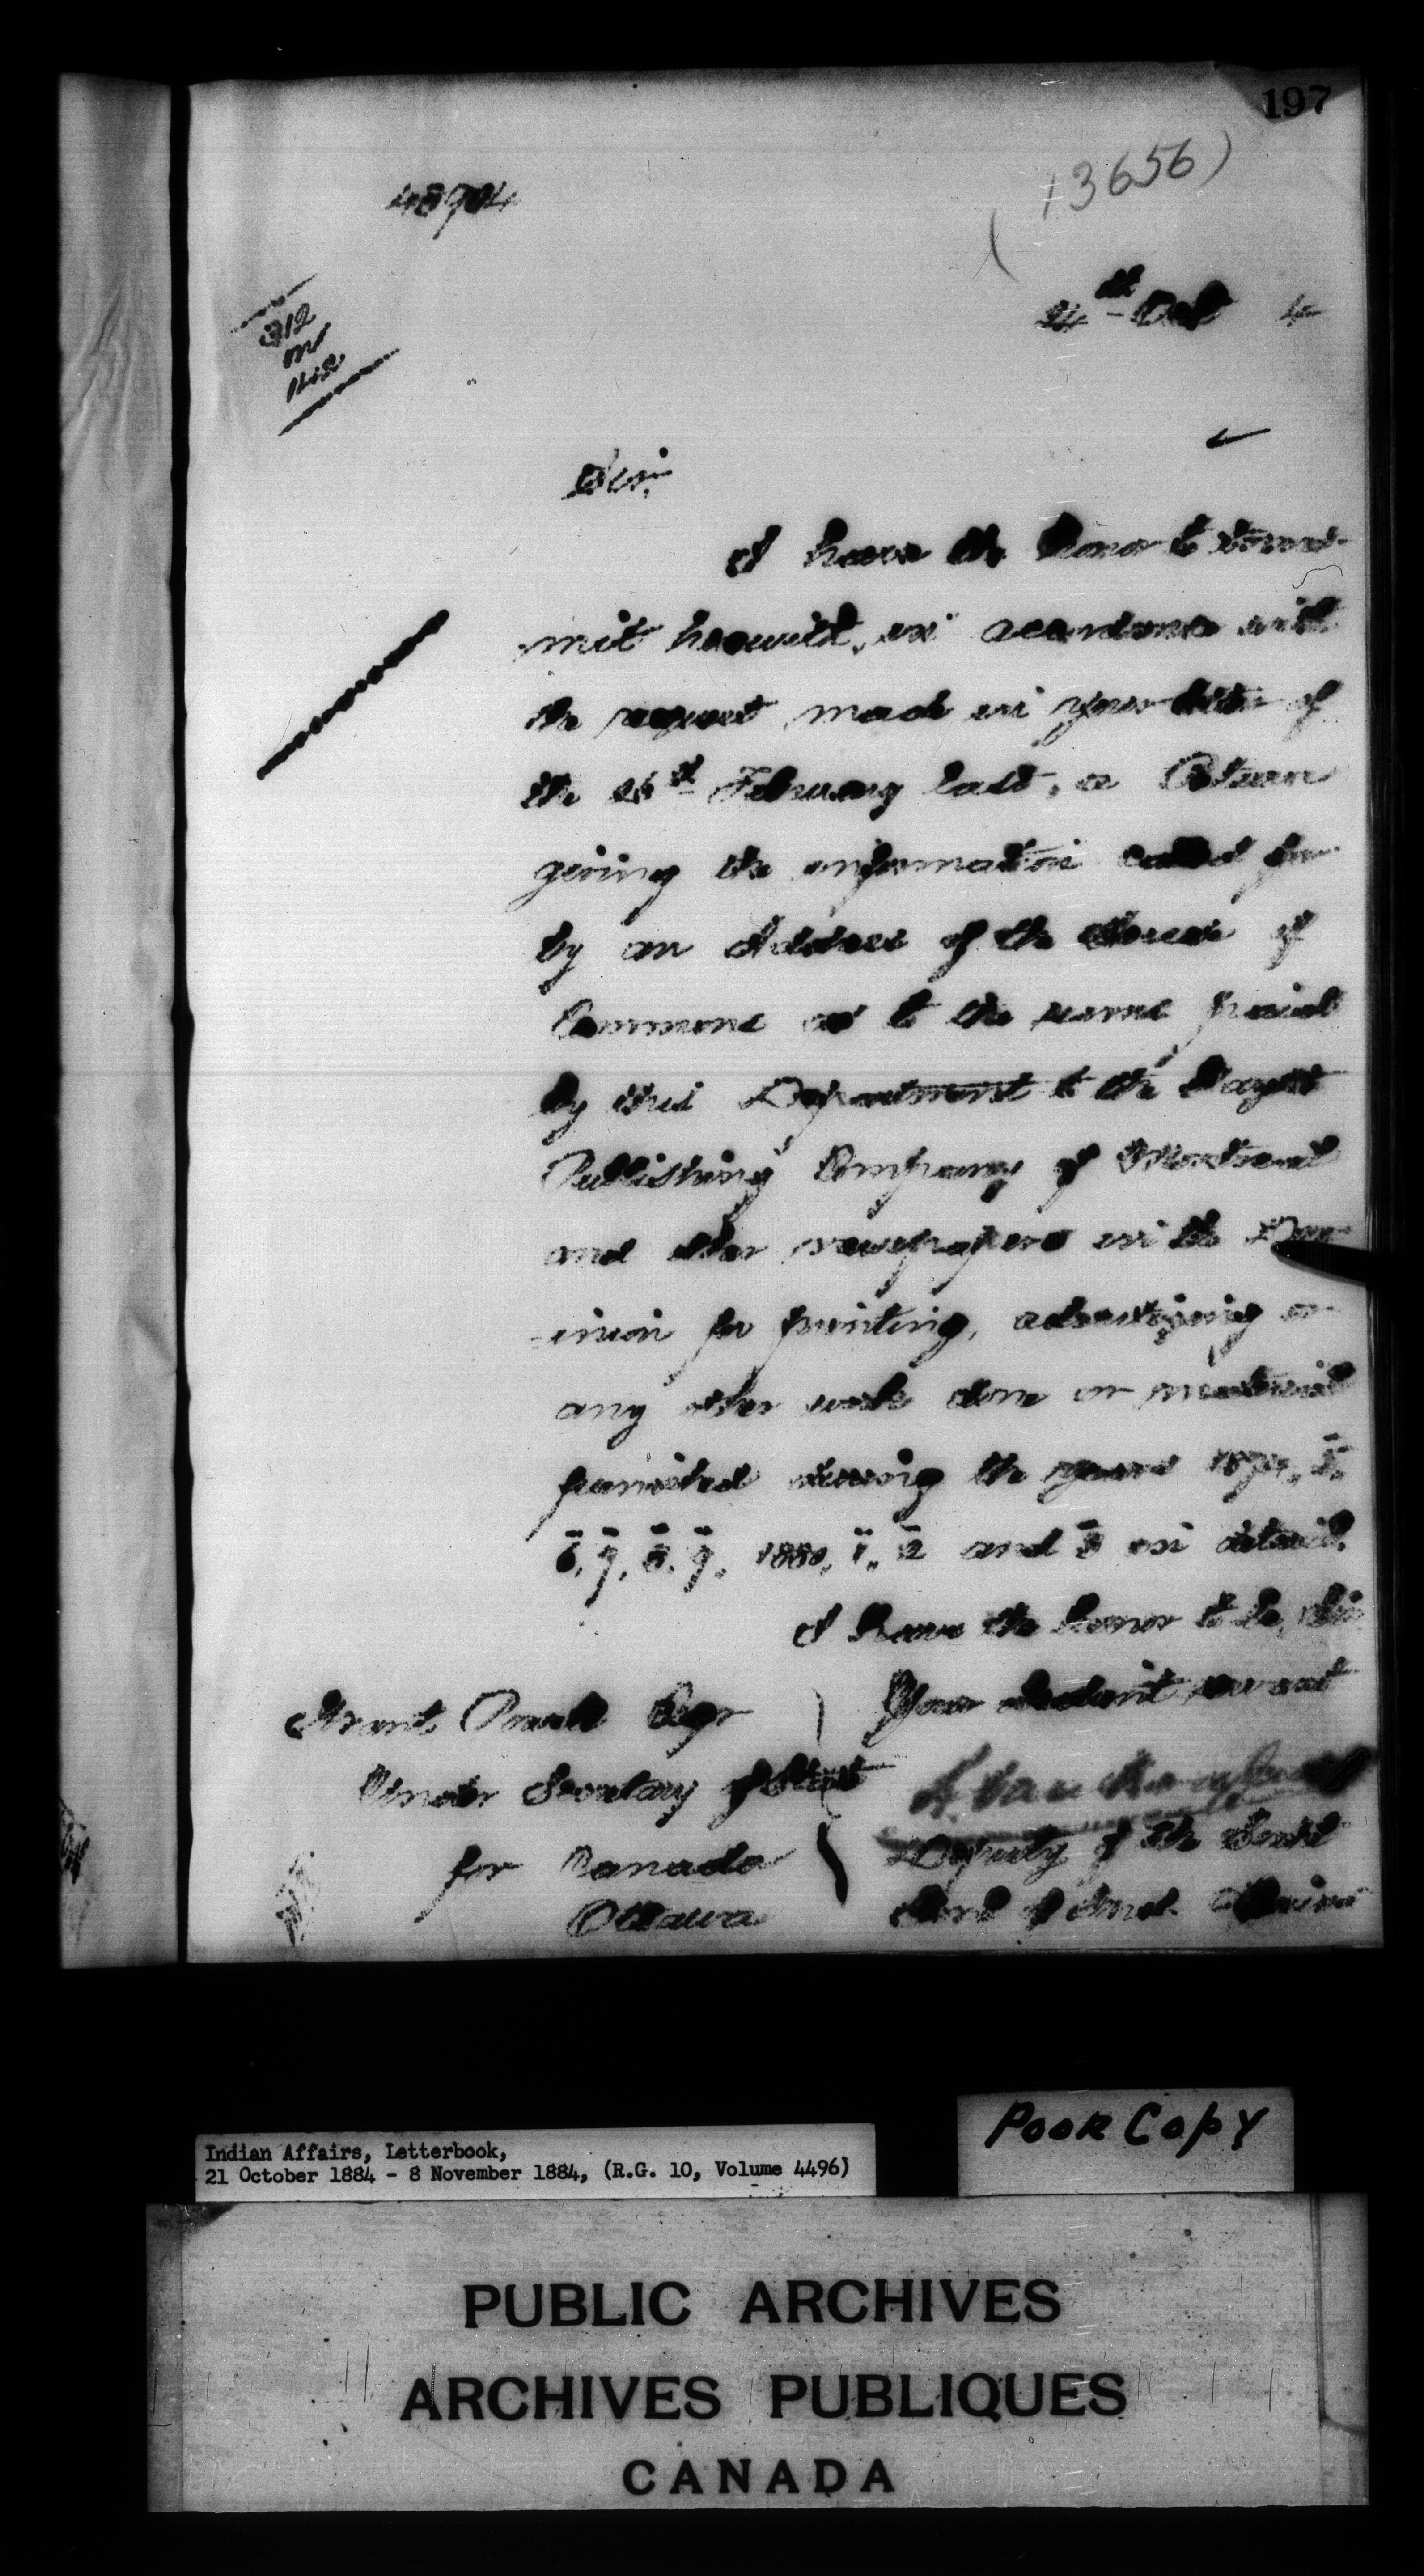 197
(13656)
24th Oct 4
312
Sir,
I have the honor to trans-
mit herewith, in accordance with
the request made in your letter of
the 26th February last, a Return
giving the information called for
by an Address of the House of
Commons as to the sums paid
by this Department to the
Publishing Company of Montreal
and other newspapers in the Dom-
inion for printing, advertising or
any other work done or material
furnished during the years
1880, 1, 2 and 3 in detail.
I have the honor to be, Sir
Your obedient servant
Grant Powell Esqr
Under Secretary of State
for Canada
Ottawa
L. Vankoughnet
Deputy of the Supt
Genl of Ind. Affairs
Poor Copy
Indian Affairs, Letterbook,
21 October 1884 - 8 November 1884, (R.G. 10, Volume 4496)
PUBLIC ARCHIVES
ARCHIVES PUBLIQUES
CANADA